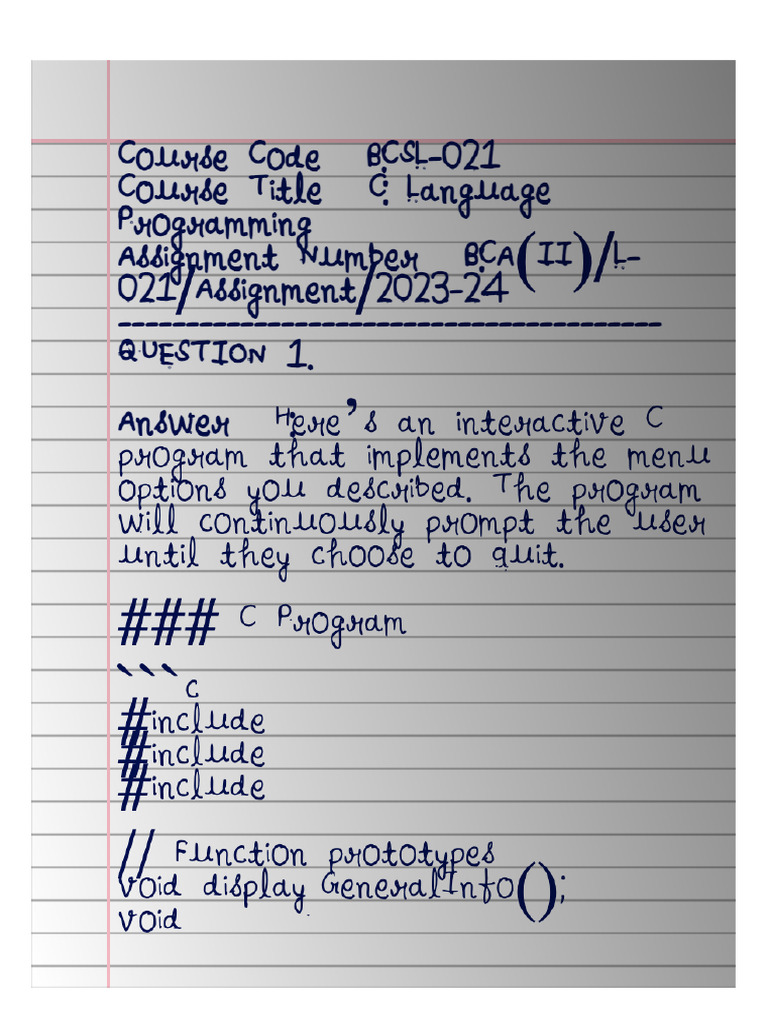 Course Code BCSL-021
Course Title C Language
Programming
Assignment Number BCA(II)/L-
021/Assignment/2023-24
----------------------------------------
QUESTION 1.
Answer Here's an interactive C
program that implements the menu
options you described. The program
will continuously prompt the user
until they choose to quit.
### C Program
```
C
#include
#include
#include
// Function prototypes
void display GeneralInfo();
void